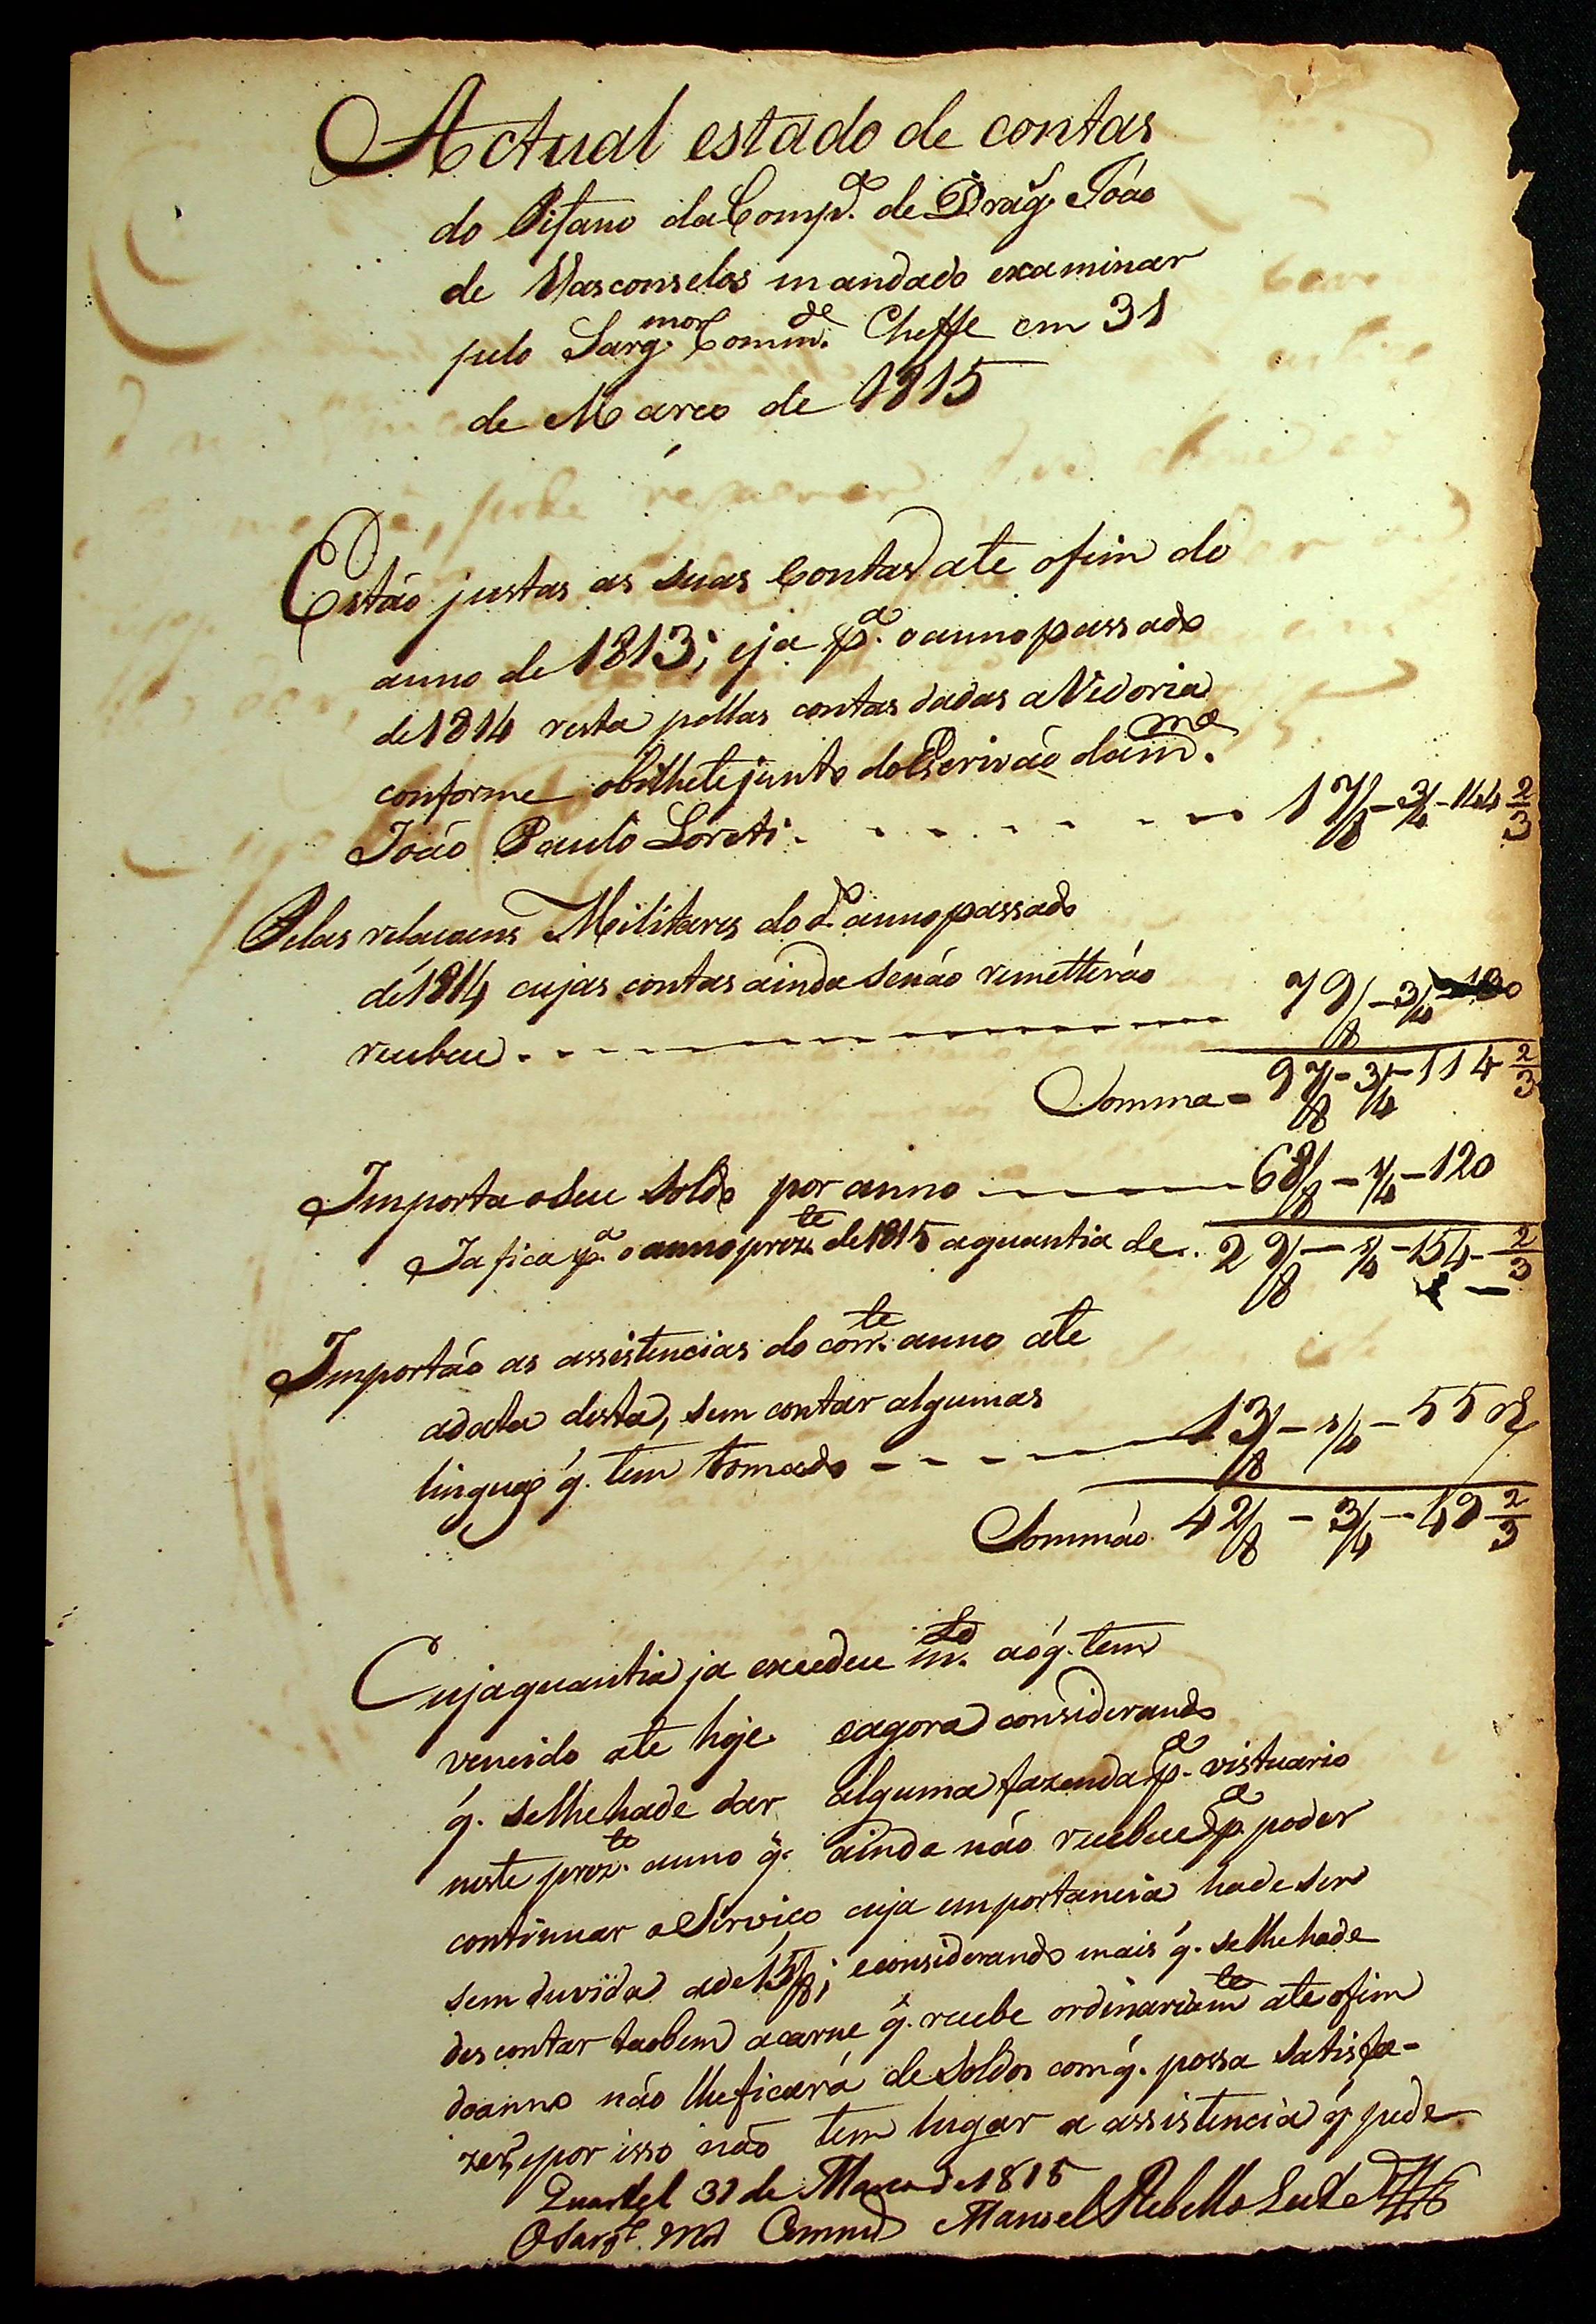 Actual estado de contas
do Pifano da Comp.ª de Drag.s João
de Vasconselos mandado examinar
pelo Sarg. mor Comm.de Cheffe em 31
de Março de 1815
Estão justas as suas Contas ate ofim do
anno de 1813; eja p.ª oannopassado
de 1814 resta pellas contas dadas aVedoria
conforme obilhete junto do Escrivão dam.ma
João Paulo Loreti. 17/8 - 3/4 - 144 2/3
Pelas relaçoens Militares do d.º annopassado
de 1814 cujas contas ainda senão remetterão
recebeu 79/8 - 3/4
Somma = 97/8 - 3/4 - 114 2/3
Importa oseu soldo por anno 68/8 - 1/4 - 120
Ja fica p.ª o anno prez.te de 1815 aquantia de 29/8 - 1/4 - 154 - 2/3
Importão as assistencias do corr.te anno ate
adata desta, sem contar algumas
lingoas q. tem tomado 13/8 - 1/4 - 55 r
Sommão 42/8 - 3/4 - 49 2/3
Cujaquantia ja excedeu m.to aóq. tem
vencido ate hoje eagora considerando
q. selhehade dar alguma fazenda p.ª vistuario
neste prez.te anno q. ainda não recebeu p.ª poder
continuar oServiço cuja emportancia hade ser
sem duvida ade 15/8; econsiderando mais q. selhehade
descontar taobem acarne q. recebe ordinariam.te ate ofim
doanno não lheficará de Soldos comq. possa satisfa-
zer, epor isso não tem lugar a assistencia q. pede
Quartel 31 de Março de 1815
OSarg.t Mor Commd Manoel Rebello Leite